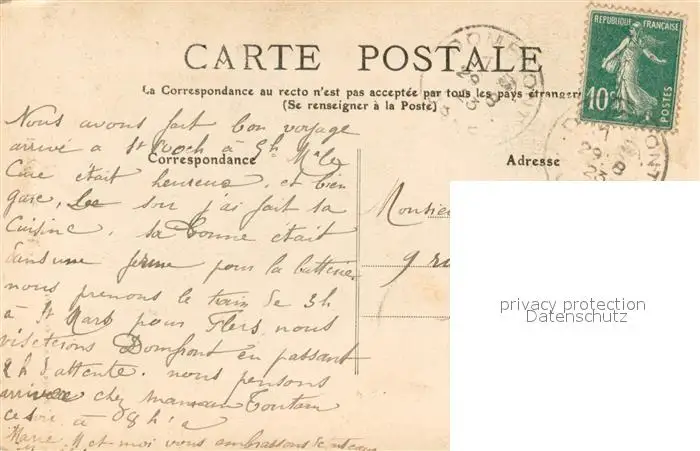 RÉPUBLIQUE FRANÇAISE
10c
POSTES
DOMFRONT
CARTE POSTALE
La Correspondance au recto n'est pas acceptée par tous les pays étrangers
(Se renseigner à la Poste)
Correspondance
Adresse
Nous avons fait bon voyage
arrivé à St Roch à 5h Mr le
Curé était heureux, et bien
gare, Le soir j'ai fait sa
Cuisine, sa bonne était
dans une ferme pour la batterie
nous prenons le train de 3h
à St Marb pour Flers nous
visiterons Domfront en passant
2h d'attente. nous pensons
arriver chez maman Toutain
ce soir à 8h
Marie et moi vous embrassons
Monsie
gr
privacy protection
Datenschutz